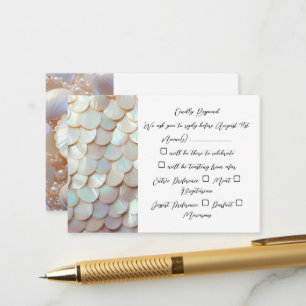 Kindly Respond
We ask you to reply before August 1st
Name(s)
will be there to celebrate
will be toasting from afar
Entrée Preference: Meat
Vegetarian
Dessert Preference: Parfait
Macarons